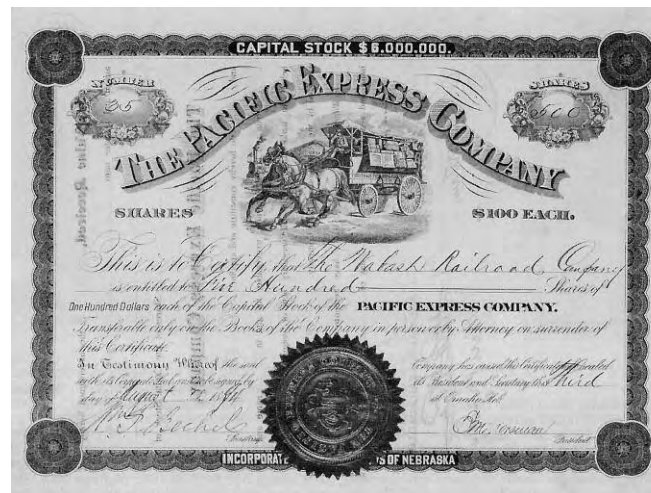 CAPITAL STOCK $6,000,000.
NUMBER
25
SHARES
500
THE PACIFIC EXPRESS COMPANY
SHARES
$100 EACH.
This is to Certify that The Wabash Railroad Company
is entitled to Five Hundred Shares of
One Hundred Dollars each of the Capital Stock of the PACIFIC EXPRESS COMPANY.
Transferable only on the Books of the Company in person or by Attorney on surrender of
this Certificate.
In Testimony Whereof the said Company has caused this Certificate to be sealed
with its Corporate Seal and to be signed by its President and Secretary this third
day of August at Omaha, Neb.
Secretary
President
INCORPORATE S OF NEBRASKA